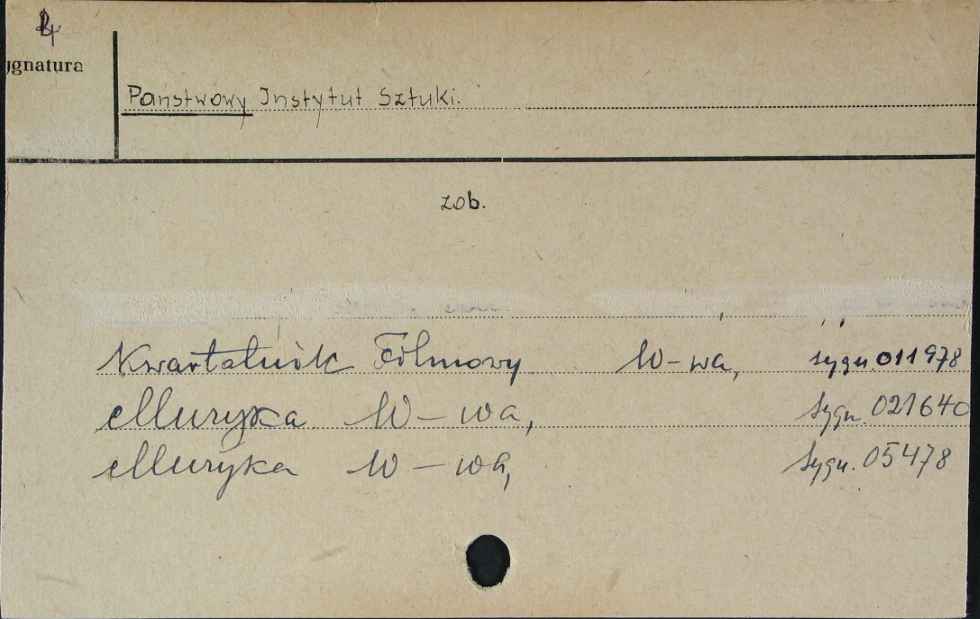 ygnatura
Państwowy Instytut Sztuki.
zob.
Kwartalnik Filmowy W-wa, sygn. 011978
Muzyka W-wa, sygn. 021640
Muzyka W-wa, sygn. 05478